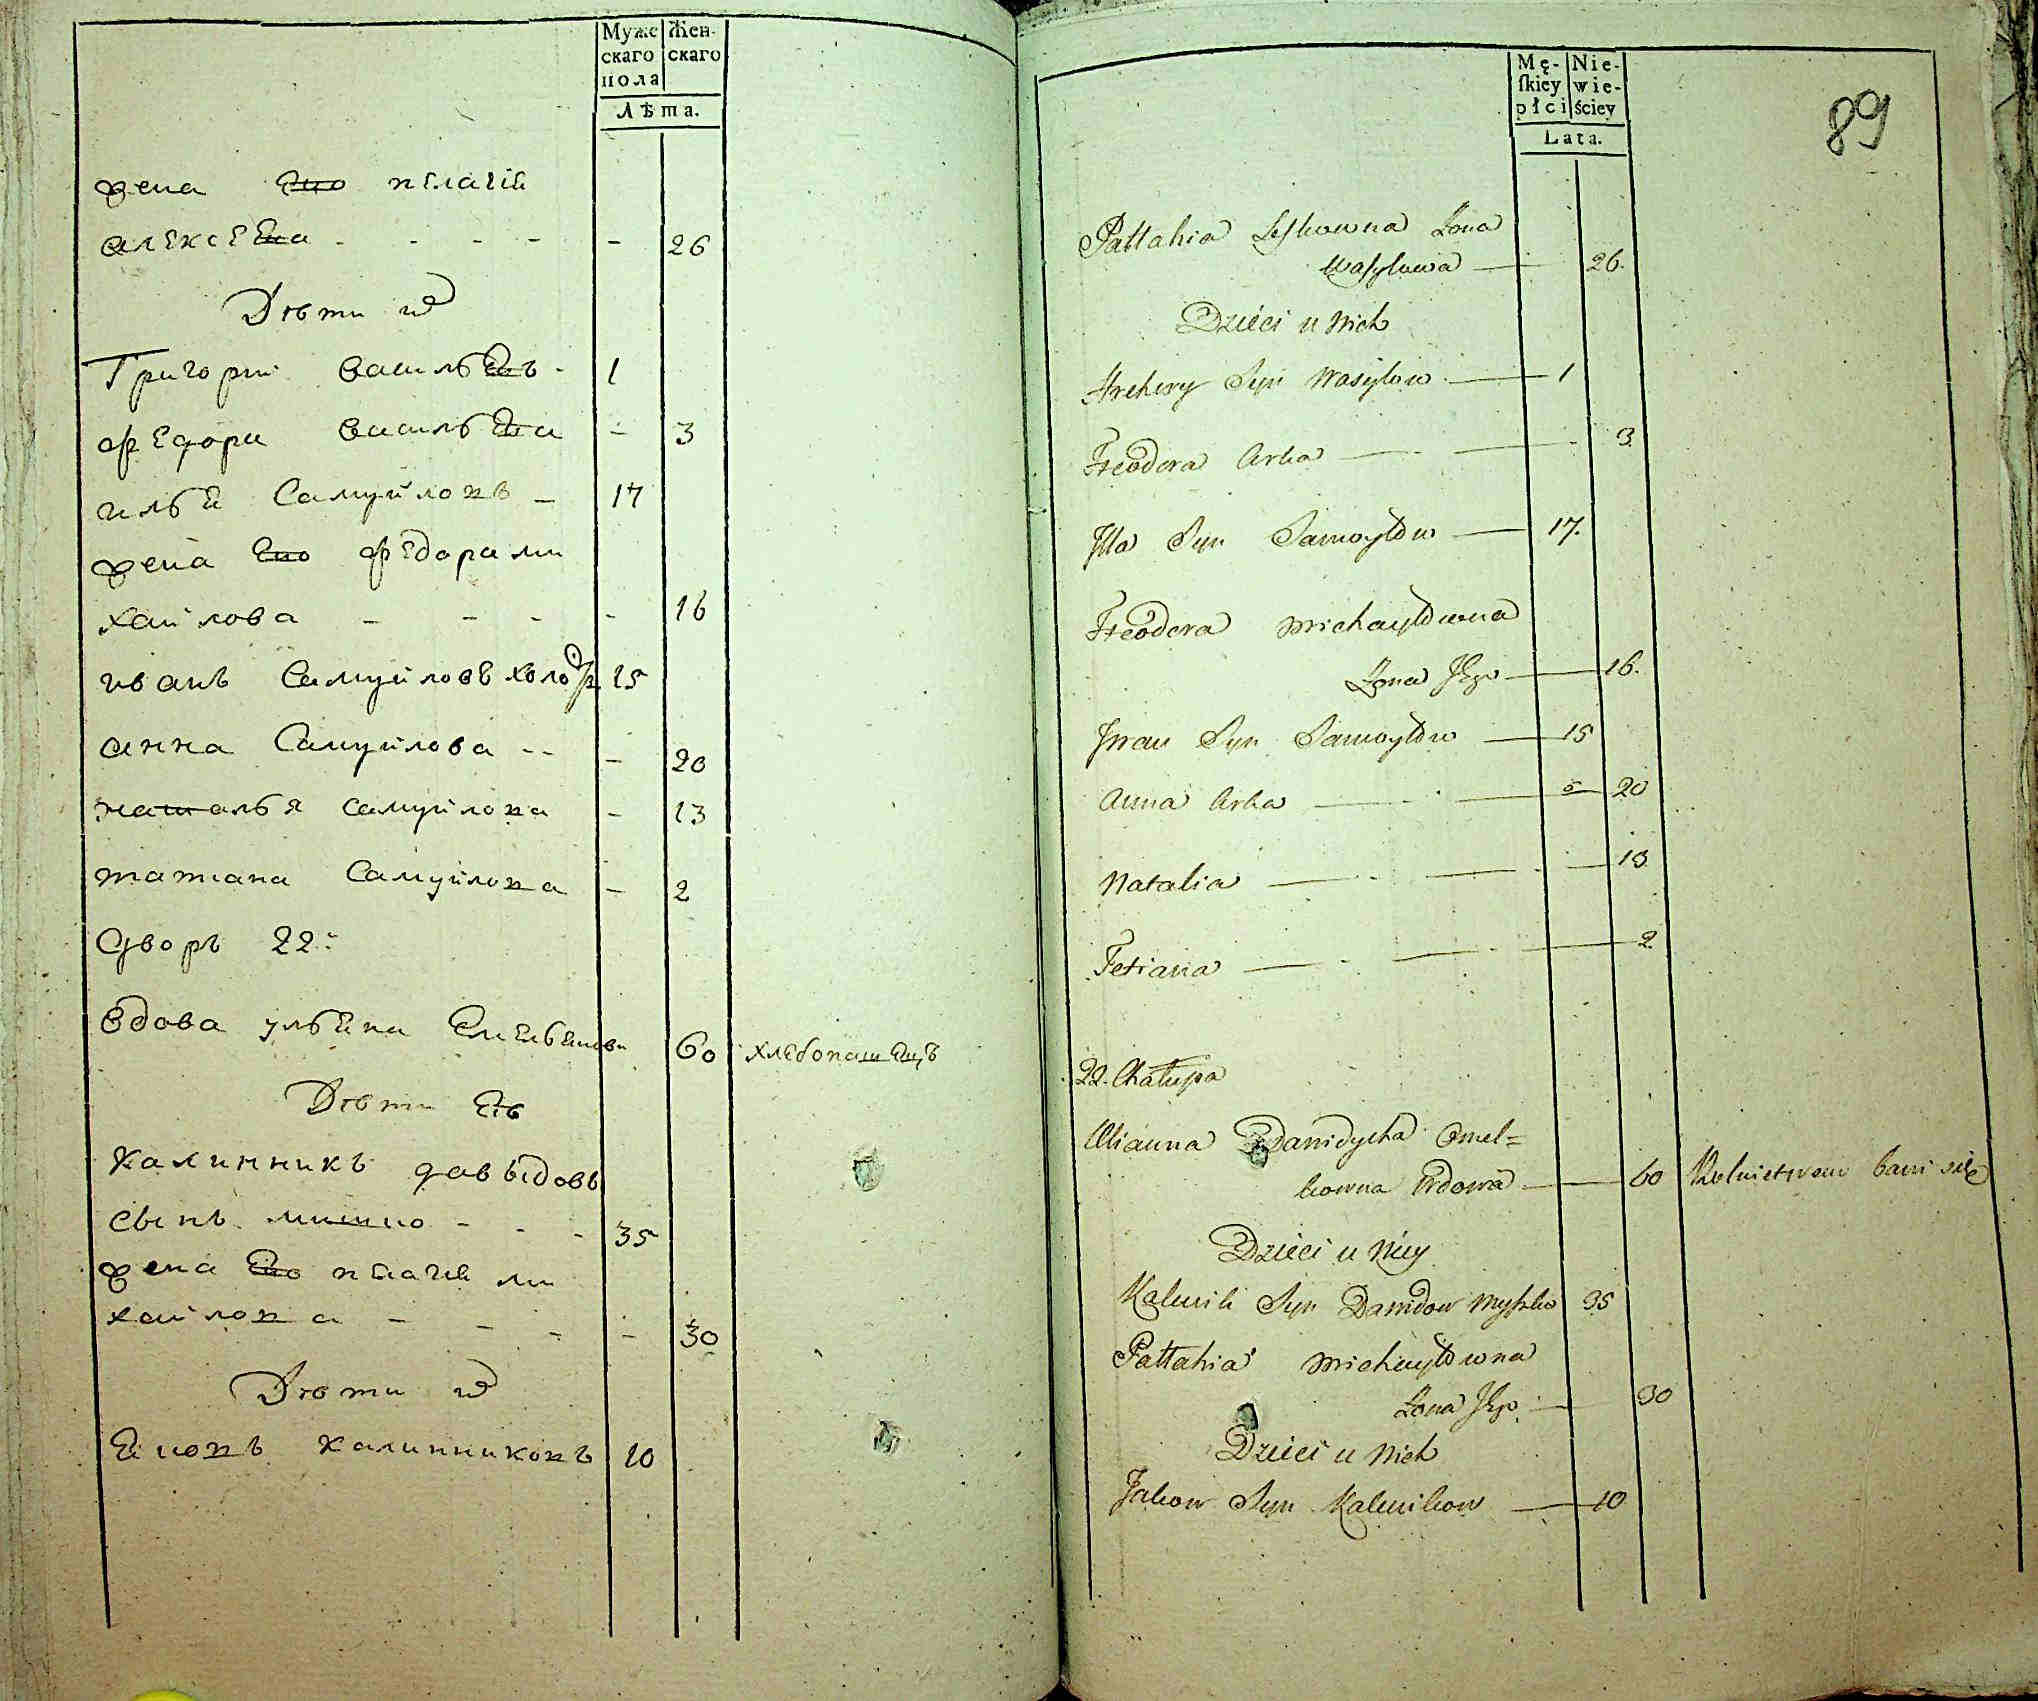 Муже
скаго
пола
Жен-
скаго
Лѣта.
жена Его пелагія
алексеЕва - - - - - 26
Дѣти ихъ
Григорий васильЕвъ - 1
фЕдора васильЕва - 3
илья Самуйловъ - 17
жена Его фЕдора ми
хайлова - - - - 16
иванъ Самуйловъ холо 15
анна Самуйлова -- - 20
наталья самуйлова - 13
татиана Самуйлова - 2
Дворъ 22:
вдова ульЕна ЕмельЕнова 60 хлЕбопашЕцъ
Дѣти Еѣ
Калинникъ давыдовъ
сынъ мишко - - - 35
жена Его пелагия ми
хайлова - - - - 30
Дѣти ихъ
Якове калинниковъ 10
89
Mę-
ſkiey
płci
Nie-
wie-
ściey
Lata.
Pallahia Leſkowna Żona
Waſylowa 26.
Dzieci u Nich
Hrehory Syn Wasylow 1
Fteodora Corka 3
Jlla Syn Samoyłow 17.
Fteodora Michayłowna
Żona Jego 16.
Jwan Syn Samoyłow 15
Anna Corka 20
Natalia 13
Tetiana 2
22. Chałupa
Ulianna Dawidycha Omel=
kowna Wdowa 60 Rolnictwem bawi się
Dzieci u Niey
Kalenik Syn Dawidow Myszko 35
Pallahia Michayłowna
Żona Jego 30
Dzieci u Nich
Jakow Syn Kalenikow 10